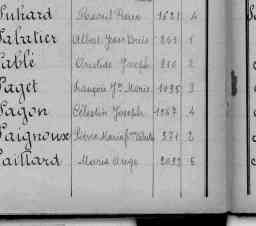 Suhard Pascal Pierre 1621 4
Sabatier Albert Jean Louis 263 1
Sablé Aristide Joseph 810 2
Saget François Jn Marie 1095 3
Sagon Célestin Joseph 1267 4
Saignoux Pierre Marie 271 2
Saillard Marie Ange 2022 5